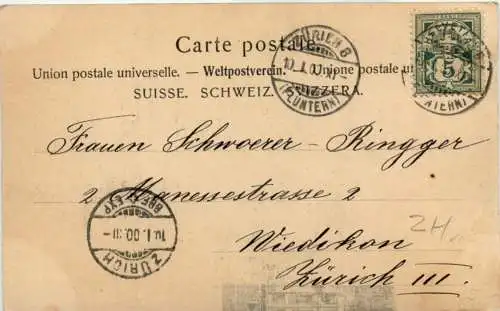 Carte postale.
Union postale universelle. — Weltpostverein. — Unione postale u
SUISSE. SCHWEIZ. SVIZZERA.
ZÜRICH 8
10. I. 00
(FLUNTERN)
5
Frauen Schwoerer-Ringger
2 Manessestrasse 2
Wiedikon
Zürich III.
ZH
BRF. EXP.
10. I. 00. III
ZÜRICH